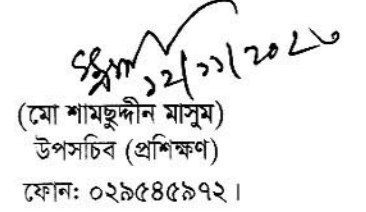 ১২/১১/২০২০
(মো শামছুদ্দীন মাসুম)
উপসচিব (প্রশিক্ষণ)
ফোন: ০২৯৫৪৫৯৭২।